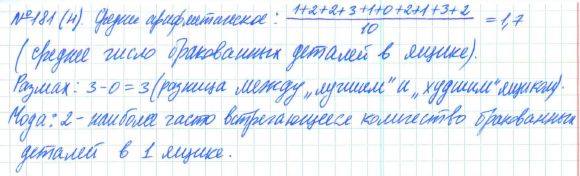 №181(н) Среднее арифметическое: (1+2+2+3+1+0+2+1+3+2)/10 = 1,7
(среднее число бракованных деталей в ящике).
Размах: 3-0=3 (разница между „лучшим" и „худшим" ящиком).
Мода: 2 - наиболее часто встречающееся количество бракованных
деталей в 1 ящике.